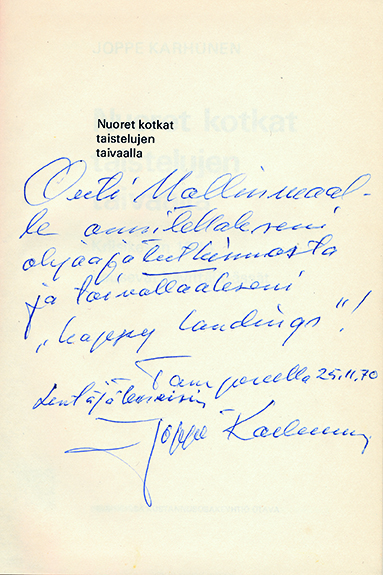 JOPPE KARHUNEN
Nuoret kotkat
taistelujen
taivaalla
Outi Mallinmaal-
le onnitellakseni
ohjaajatutkinnosta
ja toivottaakseni
„happy landings"!
Tampereella 25.11.70
Lentäjäterveisin
Joppe Karhunen